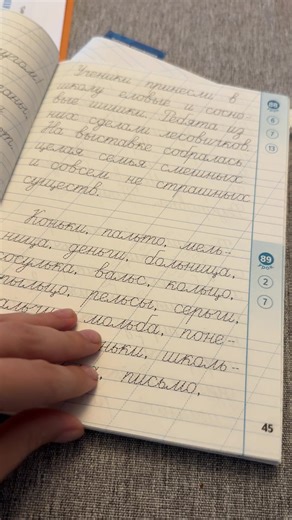 Ученики принесли в
школу еловые и сосно-
вые шишки. Ребята из
них сделали лесовичков.
На выставке собралась
целая семья смешных
и совсем не страшных
существ.
Коньки, пальто, мель-
ница, деньги, больница,
сосулька, вальс, кольцо,
рельсы, серьги,
мольба, поне-
школь-
письмо.
88
6
7
13
89
2
7
45